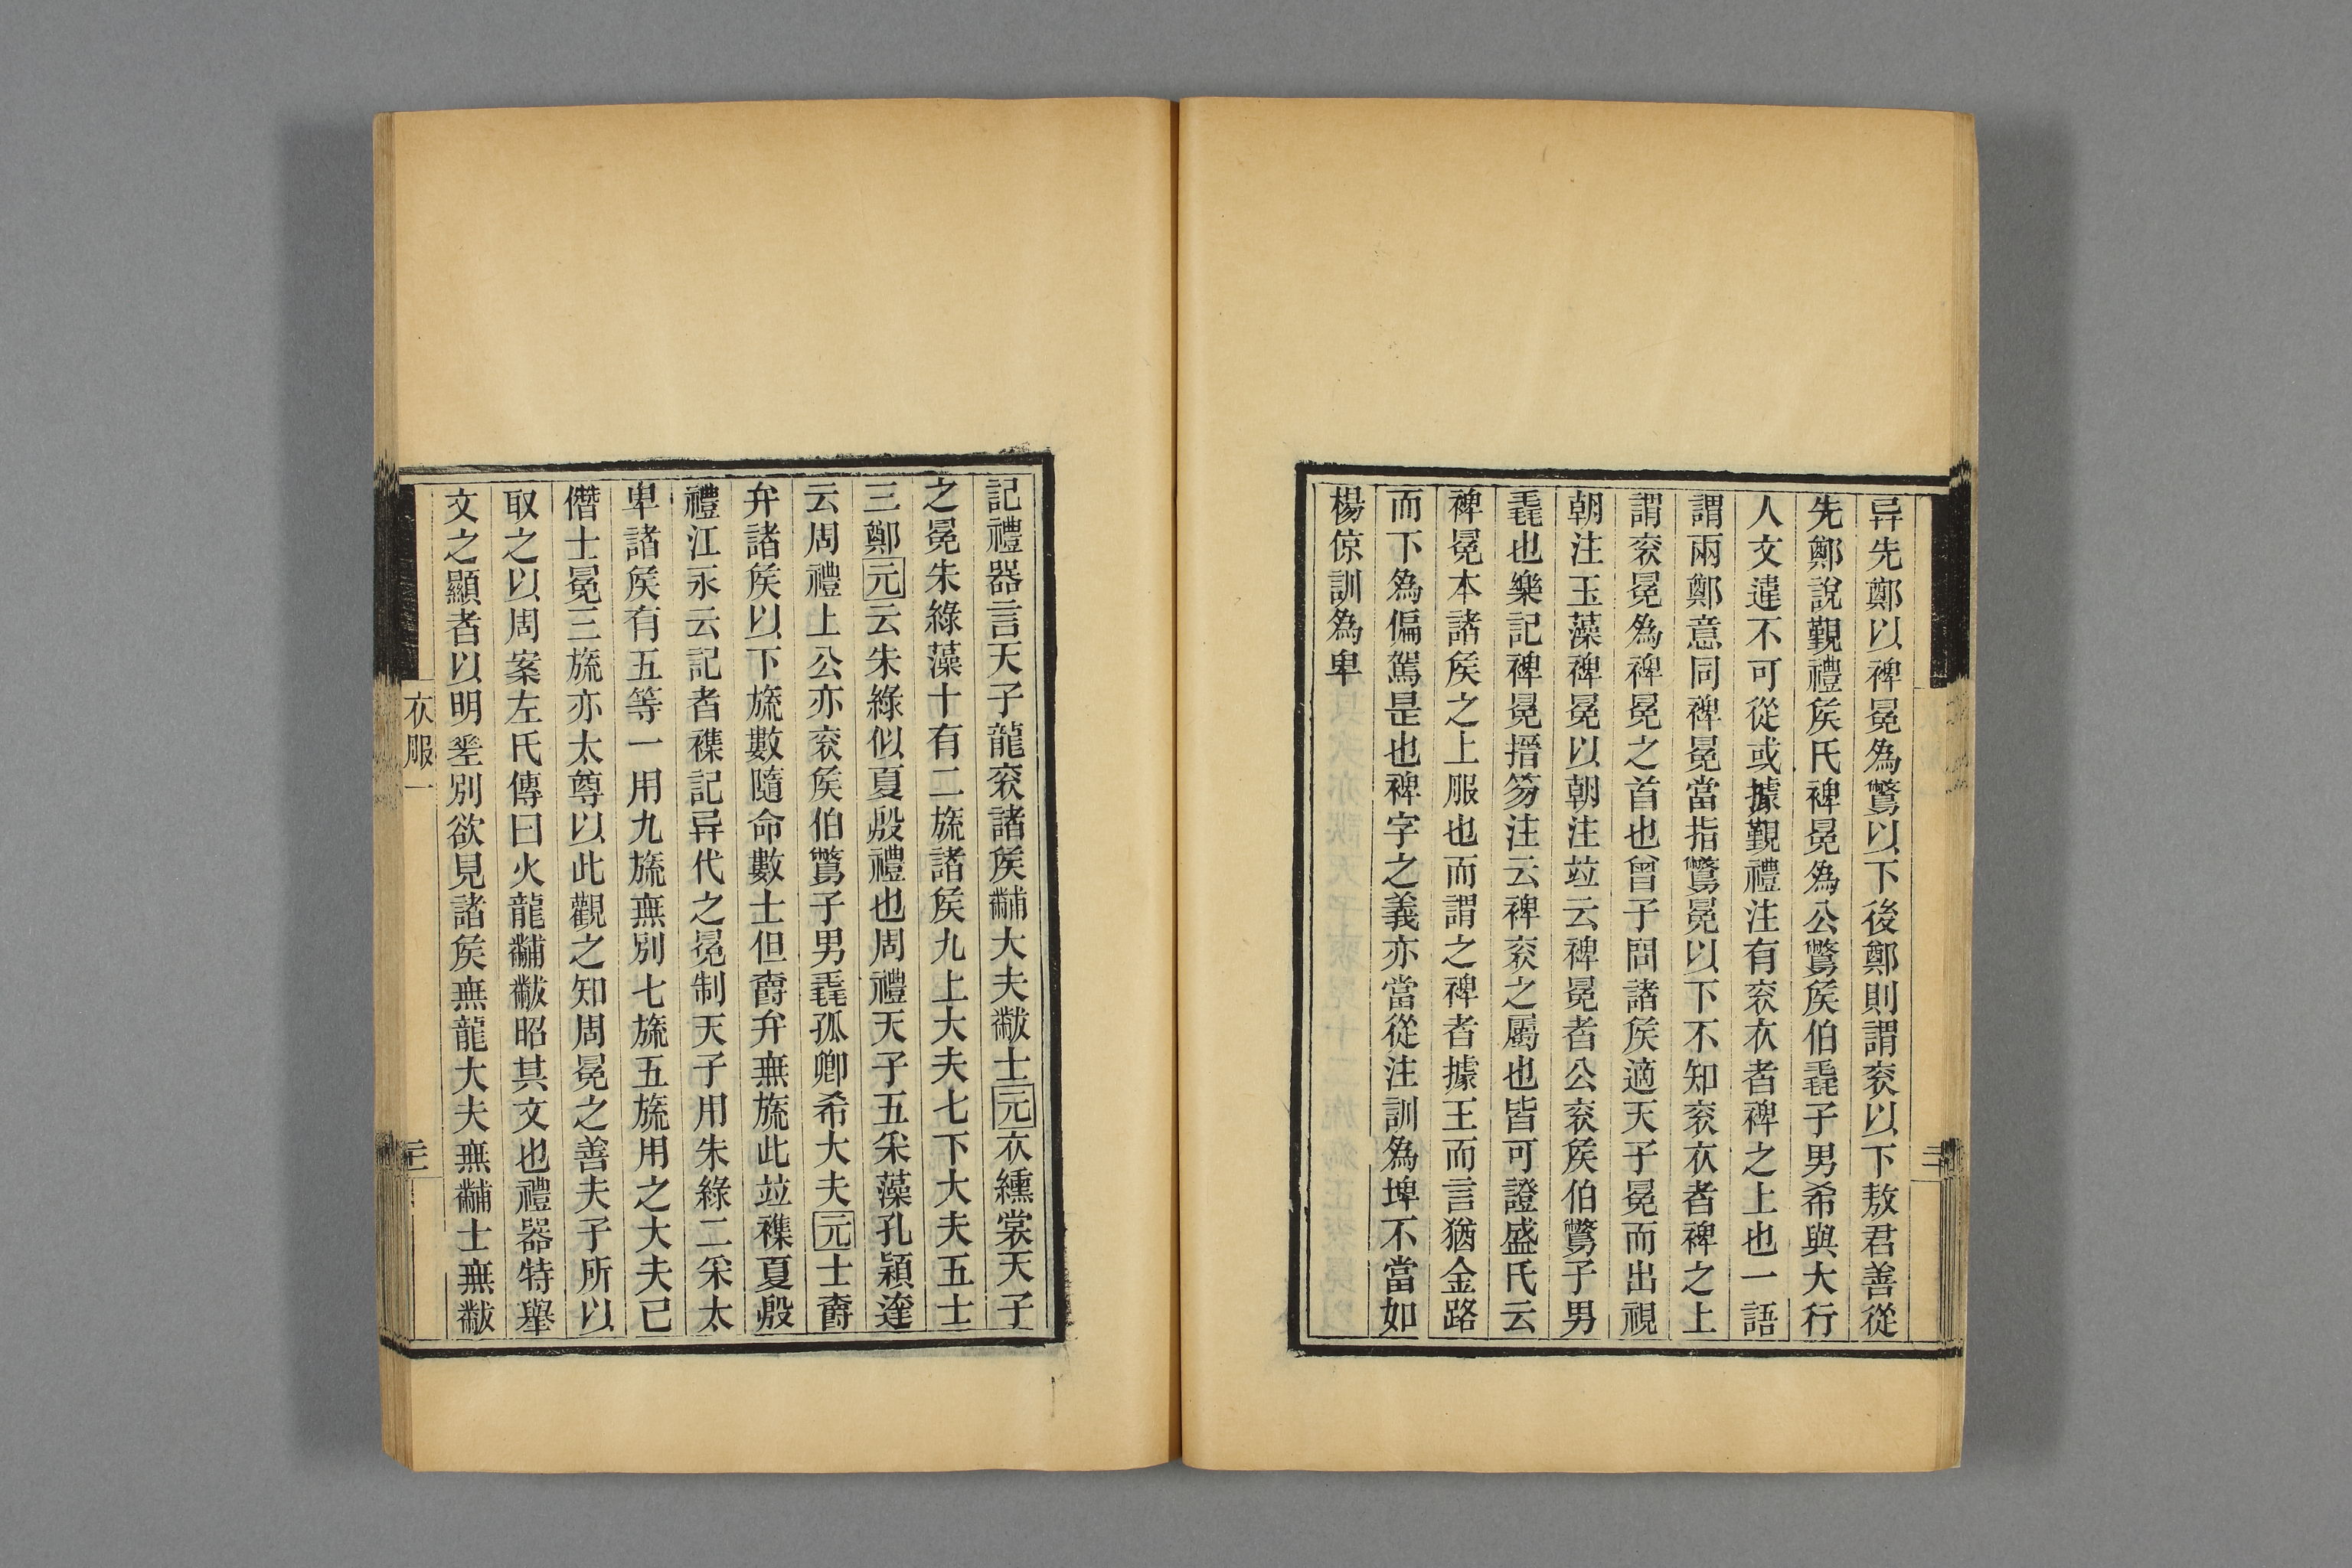 异先鄭以裨冕為鷩以下後鄭則謂衮以下敖君善從
先鄭說覲禮矦氏裨冕為公鷩矦伯毳子男希與大行
人文違不可從或據覲禮注有衮衣者裨之上也一語
謂兩鄭意同裨冕當指鷩冕以下不知衮衣者裨之上
謂衮冕為裨冕之首也曾子問諸矦適天子冕而出視
朝注玉藻裨冕以朝注竝云裨冕者公衮矦伯鷩子男
毳也樂記裨冕搢笏注云裨衮之屬也皆可證盛氏云
裨冕本諸矦之上服也而謂之裨者據王而言猶金路
而下為偏駕是也裨字之義亦當從注訓為埤不當如
楊倞訓為卑
三
記禮器言天子龍衮諸矦黼大夫黻士元衣纁裳天子
之冕朱綠藻十有二旒諸矦九上大夫七下大夫五士
三鄭元云朱綠似夏殷禮也周禮天子五采藻孔穎達
云周禮上公亦衮矦伯鷩子男毳孤卿希大夫元士爵
弁諸矦以下旒數隨命數士但爵弁無旒此竝襍夏殷
禮江永云記者襍記异代之冕制天子用朱綠二采太
卑諸矦有五等一用九旒無別七旒五旒用之大夫已
僭士冕三旒亦太尊以此觀之知周冕之善夫子所以
取之以周案左氏傳曰火龍黼黻昭其文也禮器特舉
文之顯者以明𢀩別欲見諸矦無龍大夫無黼士無黻
衣服一
三